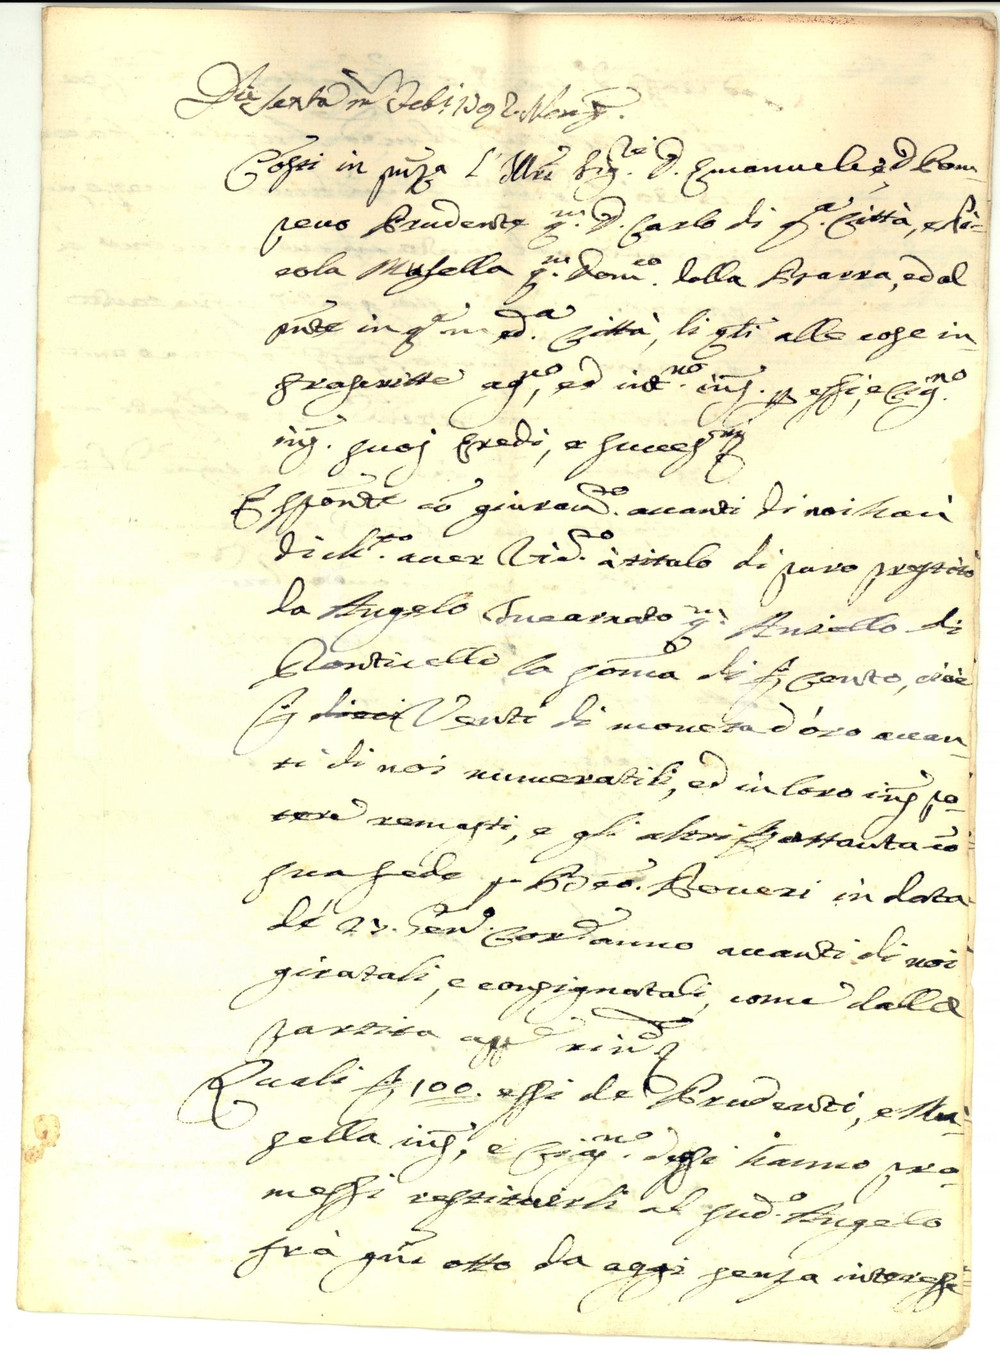 Die sexta m. Feb. 1792 Neap.
Cossti in pñza l'Illri Sig.ri D. Emanuele, e D. Pom=
peuo Prudente q.m D. Carlo di q.a Città, e Ni=
cola Musella q.m Dom.co della Barra, ed al
pnte in q.a med.a Città, li qli alle cose in=
frascritte ag.no, ed int.no ins. p essi, e cias.no
ins. suoj Eredi, e succes.ri
Espponte co giuram.to auanti di noi han
dich.to auer ric.to à titolo di puro prestito
da Angelo Incarnato q.m Aniello di
Ponticelli la soma di cento, cioè
venti di moneta d'oro auan=
ti di noi numeratili, ed in loro ins. po=
tere remasti, e gli altri ottanta co
sua fede p B.co Poueri in data
de 27. Gen. cord. anno auanti di noi
giratali, e consignatali, come dalla
partita app.
Quali 100. essi de Prudenti, e Mu=
sella ins., e cias.no d'essi hanno pro=
messi restituirli al sud.o Angelo
frà gni otto da aggi senza interesse